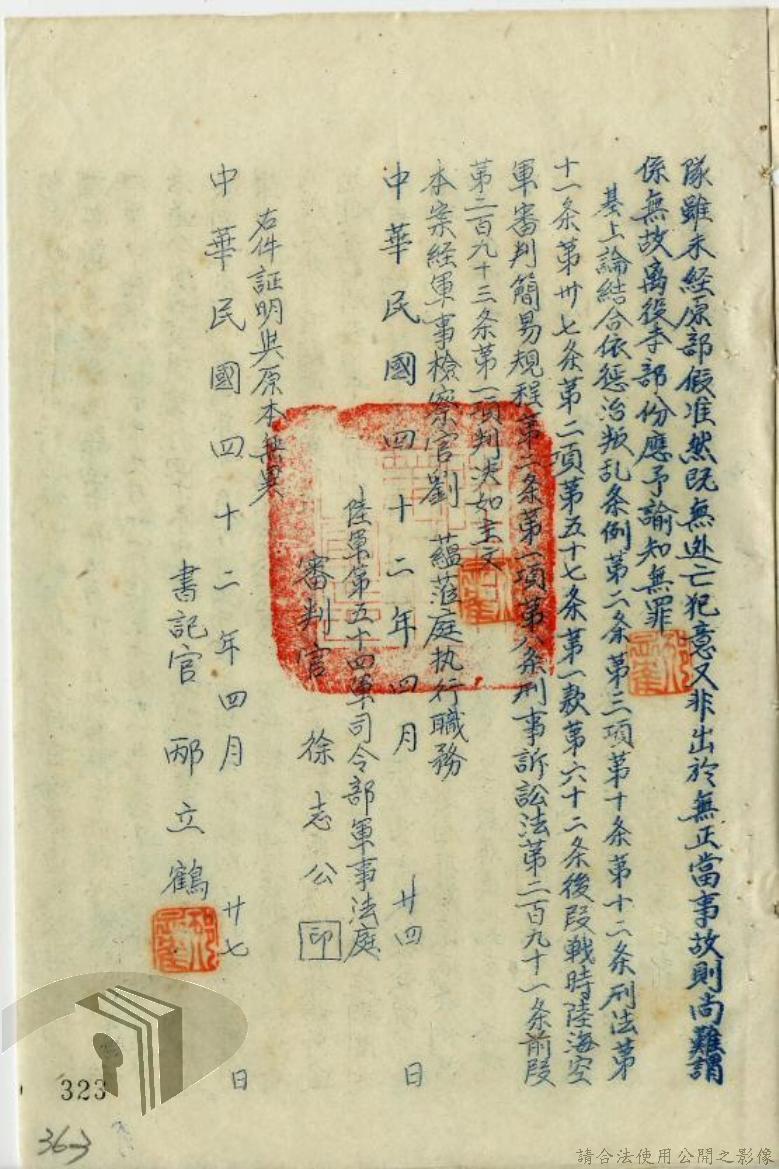 隊雖未經原部假准然既無逃亡犯意又非出於無正當事故則尚難謂
係無故离役李部份應予諭知無罪
基上論結合依惩治叛乱条例第二条第三項第十条第十二条刑法第
十一条第卅七条第二項第五十七条第一款第六十二条後段戦時陸海空
軍審判簡易規程第二条第一項第八条刑事訴訟法第二百九十一条前段
第二百九十三条第一項判决如主文
本案経軍事檢察官劉蘊蒞庭执行職務
中華民國四十二年四月廿四日
陸軍第五十四軍司令部軍事法庭
審判官 徐志公 印
右件証明与原本無異
中華民國四十二年四月廿七日
書記官 邴立鶴
323
36-3
請合法使用公開之影像